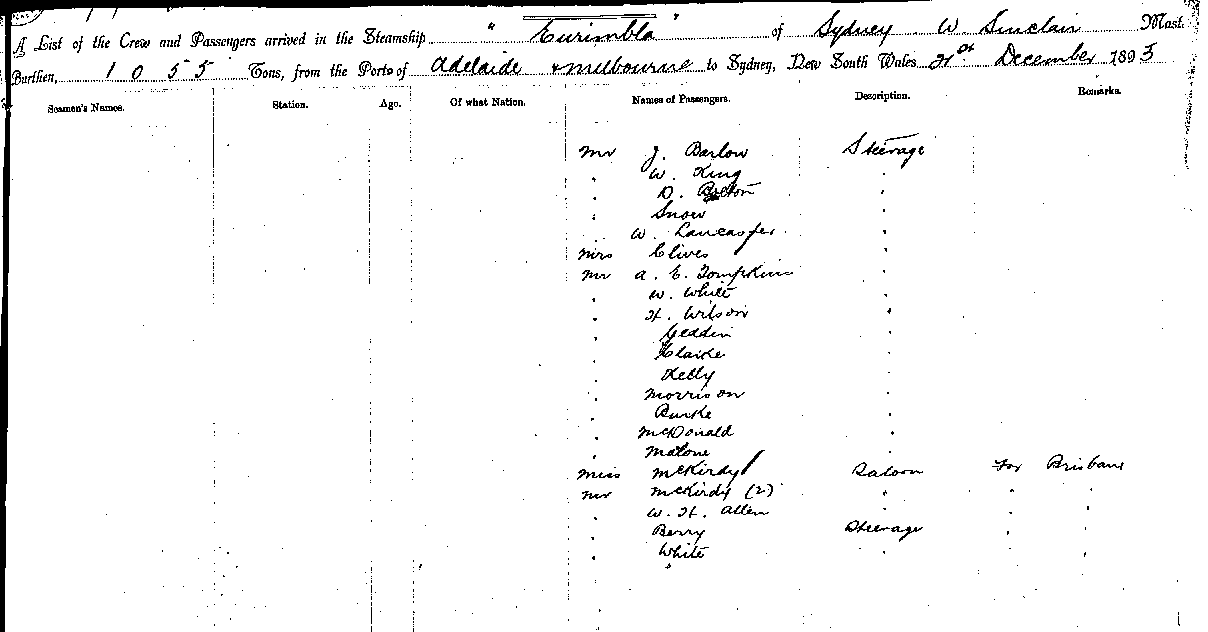 A List of the Crew and Passengers arrived in the Steamship "Eurimbla" of Sydney W Sinclair Mast.
Burthen, 1055 Tons, from the Ports of Adelaide & Melbourne to Sydney, New South Wales 21st December 1893
Seamen's Names. Station. Age. Of what Nation. Names of Passengers. Description. Remarks.
Mr J. Barlow Steerage
" W. King "
" D. Bolton "
" Snow "
" W. Lancaster "
Mrs Clives "
Mr A. E. Tompkins "
" W. White "
" H. Wilson "
" Geddin "
" Clarke "
" Kelly "
" Morrison "
" Burke "
" McDonald "
" Malone "
Miss McKirdy Saloon For Brisbane
Mr McKirdy (2) " " "
" W. H. Allen " " "
" Berry Steerage " "
" White " " "